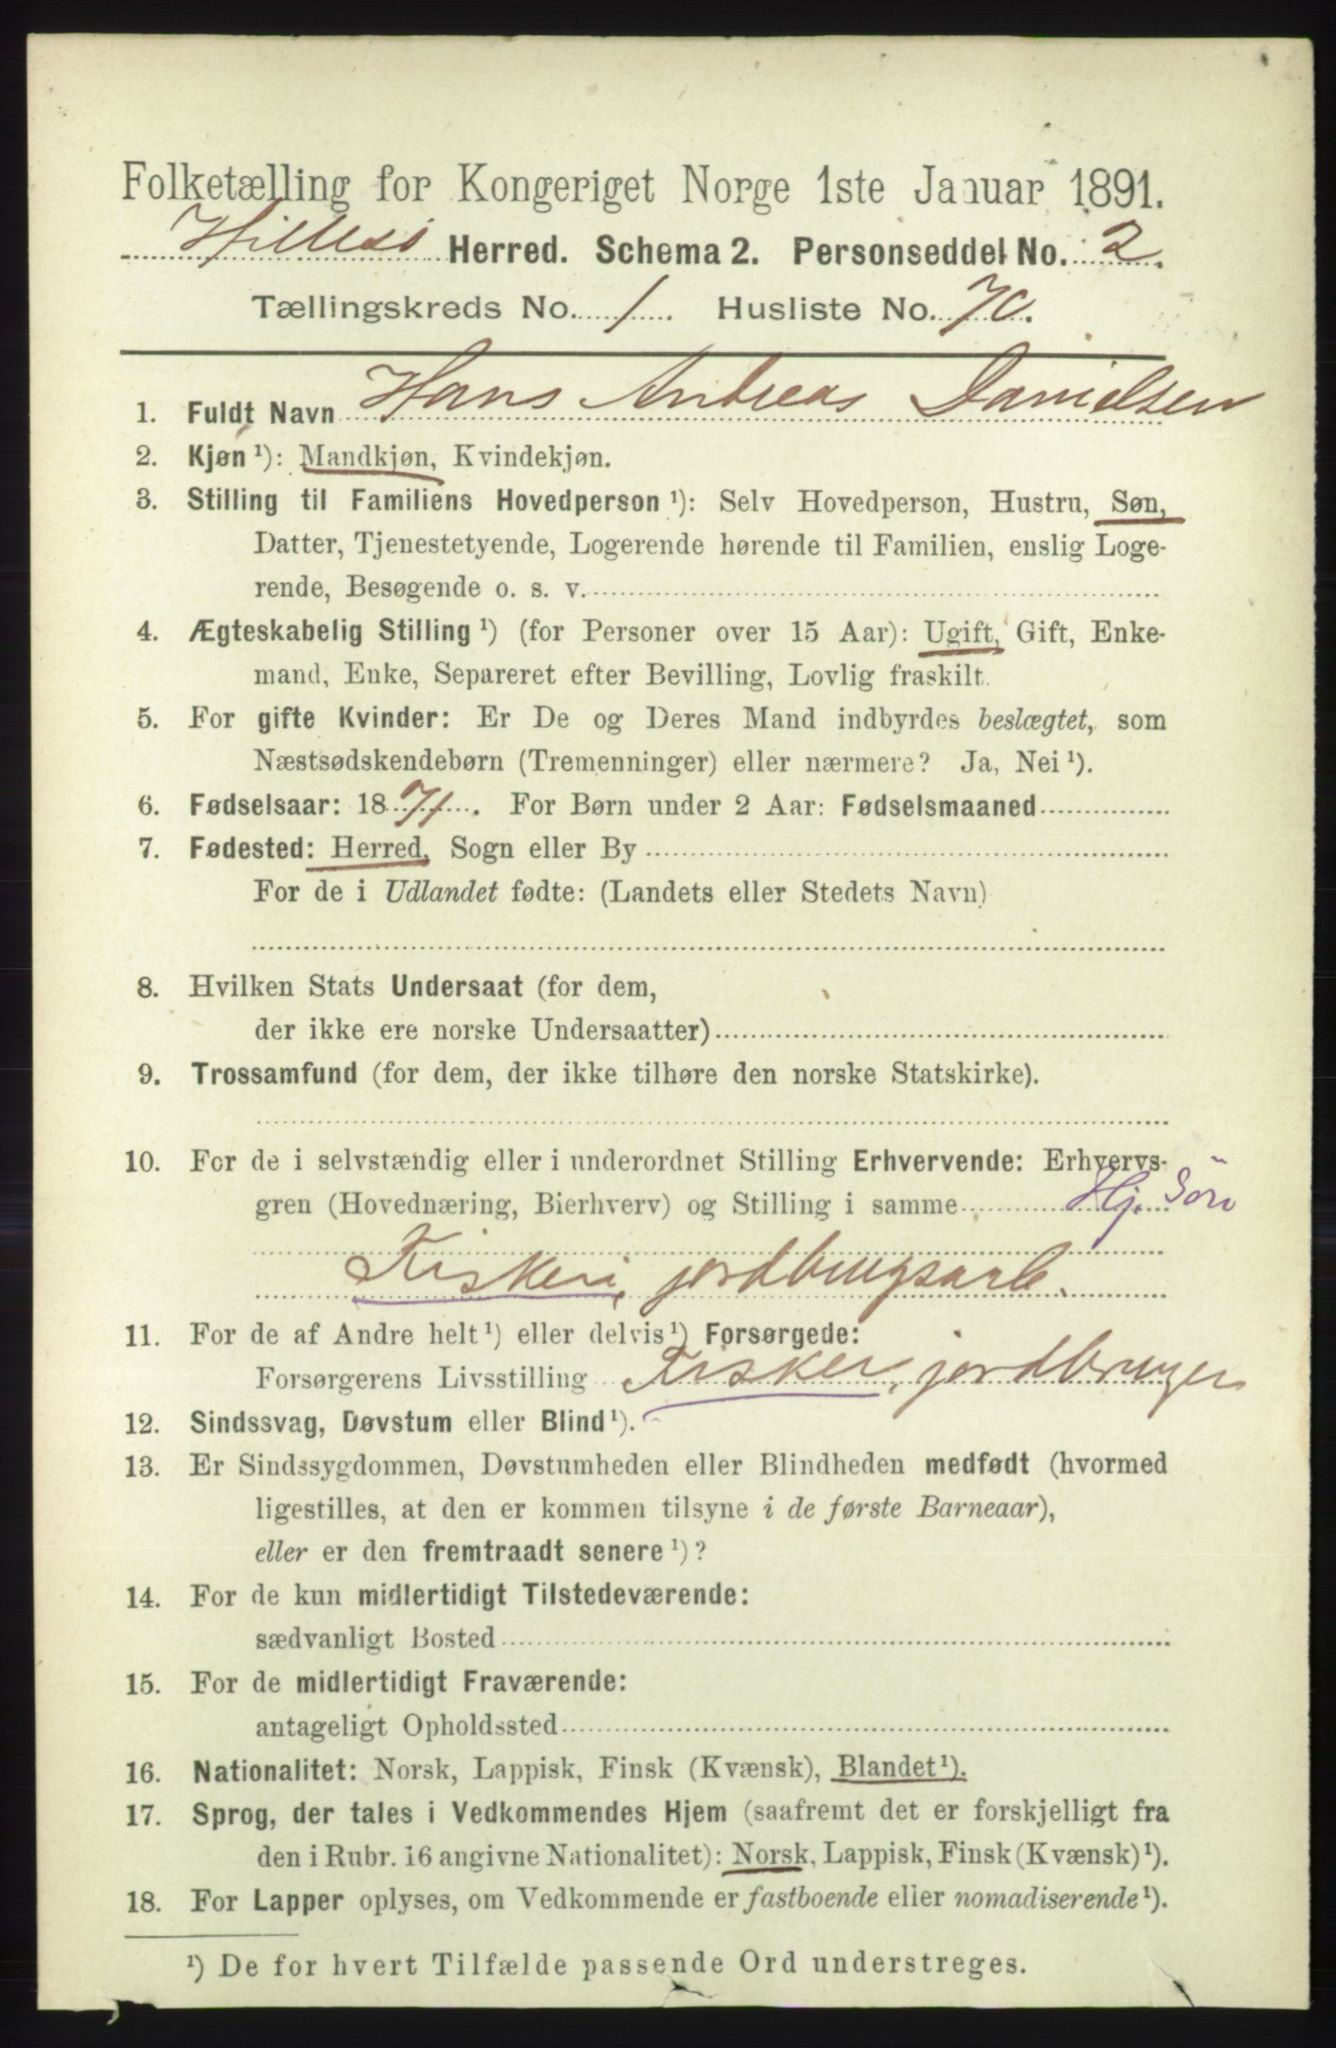 Folketælling for Kongeriget Norge 1ste Januar 1891.
Hillesö Herred. Schema 2. Personseddel No. 2.
Tællingskreds No. 1. Husliste No. 70.
1. Fuldt Navn Hans Andreas Danielsen
2. Kjøn ¹): Mandkjøn, Kvindekjøn.
3. Stilling til Familiens Hovedperson ¹): Selv Hovedperson, Hustru, Søn,
Datter, Tjenestetyende, Logerende hørende til Familien, enslig Loge-
rende, Besøgende o. s. v.
4. Ægteskabelig Stilling ¹) (for Personer over 15 Aar): Ugift, Gift, Enke-
mand, Enke, Separeret efter Bevilling, Lovlig fraskilt.
5. For gifte Kvinder: Er De og Deres Mand indbyrdes beslægtet, som
Næstsødskendebørn (Tremenninger) eller nærmere? Ja, Nei ¹).
6. Fødselsaar: 1871. For Børn under 2 Aar: Fødselsmaaned
7. Fødested: Herred, Sogn eller By
For de i Udlandet fødte: (Landets eller Stedets Navn)
8. Hvilken Stats Undersaat (for dem,
der ikke ere norske Undersaatter)
9. Trossamfund (for dem, der ikke tilhøre den norske Statskirke).
10. For de i selvstændig eller i underordnet Stilling Erhvervende: Erhvervs-
gren (Hovednæring, Bierhverv) og Stilling i samme Hj. Sön
Fiskeri, jordbrugsarb.
11. For de af Andre helt ¹) eller delvis ¹) Forsørgede:
Forsørgerens Livsstilling Fisker, jordbruger
12. Sindssvag, Døvstum eller Blind ¹).
13. Er Sindssygdommen, Døvstumheden eller Blindheden medfødt (hvormed
ligestilles, at den er kommen tilsyne i de første Barneaar),
eller er den fremtraadt senere ¹)?
14. For de kun midlertidigt Tilstedeværende:
sædvanligt Bosted
15. For de midlertidigt Fraværende:
antageligt Opholdssted
16. Nationalitet: Norsk, Lappisk, Finsk (Kvænsk), Blandet ¹).
17. Sprog, der tales i Vedkommendes Hjem (saafremt det er forskjelligt fra
den i Rubr. 16 angivne Nationalitet): Norsk, Lappisk, Finsk (Kvænsk) ¹).
18. For Lapper oplyses, om Vedkommende er fastboende eller nomadiserende ¹).
¹) De for hvert Tilfælde passende Ord understreges.